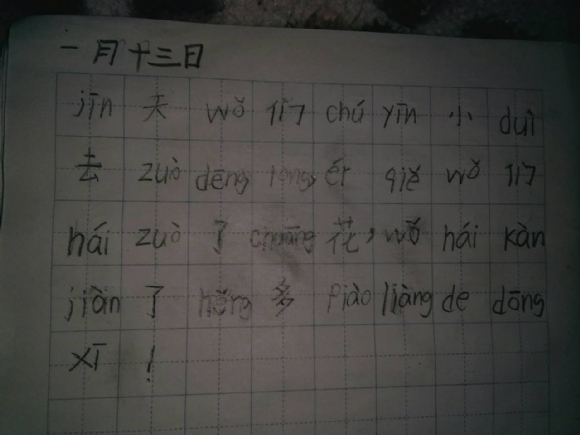 一月十三日
jīn 天 wǒ 们 chú yīn 小 duì
去 zuò dēng lóng, ér qiě wǒ 们
hái zuò 了 chuāng 花,wǒ hái kàn
jiàn 了 hěng 多 piào liàng de dōng
xī !